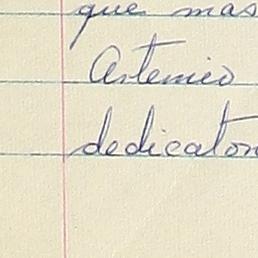 que mas
Artemio
dedicator